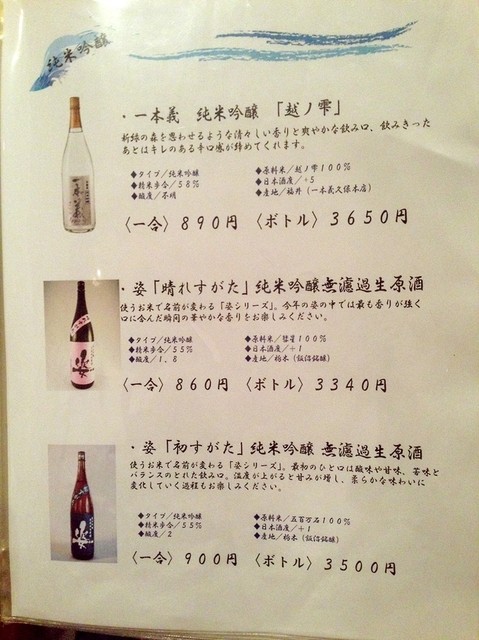 純米吟醸
・一本義　純米吟醸　「越ノ雫」
新緑の森を思わせるような清々しい香りと爽やかな飲み口、飲みきった
あとはキレのある辛口感が締めてくれます。
◆タイプ／純米吟醸　◆原料米／越ノ雫100%
◆精米歩合／58%　◆日本酒度／+5
◆酸度／不明　◆産地／福井（一本義久保本店）
〈一合〉890円　〈ボトル〉3650円
・姿「晴れすがた」純米吟醸無濾過生原酒
使うお米で名前が変わる「姿シリーズ」。今年の姿の中では最も香りが強く
口に含んだ瞬間の華やかな香りをお楽しみください。
◆タイプ／純米吟醸　◆原料米／彗星100%
◆精米歩合／55%　◆日本酒度／+1
◆酸度／1.8　◆産地／栃木（飯沼銘醸）
〈一合〉860円　〈ボトル〉3340円
・姿「初すがた」純米吟醸 無濾過生原酒
使うお米で名前が変わる「姿シリーズ」。最初のひと口は酸味や甘味、苦味と
バランスのとれた飲み口。温度が上がると甘みが増し、柔らかな味わいに
変化していく過程もお楽しみください。
◆タイプ／純米吟醸　◆原料米／五百万石100%
◆精米歩合／55%　◆日本酒度／+1
◆酸度／2　◆産地／栃木（飯沼銘醸）
〈一合〉900円　〈ボトル〉3500円